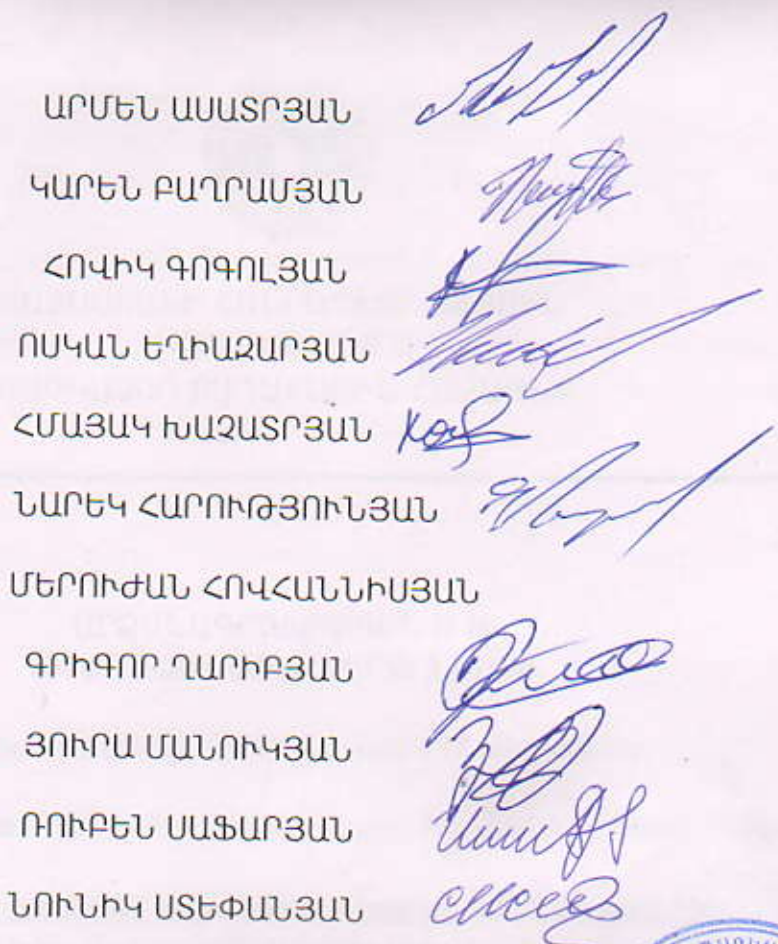 ԱՐՄԵՆ ԱՍԱՏՐՅԱՆ
ԿԱՐԵՆ ԲԱՂՐԱՄՅԱՆ
ՀՈՎԻԿ ԳՈԳՈԼՅԱՆ
ՈՍԿԱՆ ԵՂԻԱԶԱՐՅԱՆ
ՀՄԱՅԱԿ ԽԱՉԱՏՐՅԱՆ
ՆԱՐԵԿ ՀԱՐՈՒԹՅՈՒՆՅԱՆ
ՄԵՐՈՒԺԱՆ ՀՈՎՀԱՆՆԻՍՅԱՆ
ԳՐԻԳՈՐ ՂԱՐԻԲՅԱՆ
ՅՈՒՐԱ ՄԱՆՈՒԿՅԱՆ
ՌՈՒԲԵՆ ՍԱՖԱՐՅԱՆ
ՆՈՒՆԻԿ ՍՏԵՓԱՆՅԱՆ